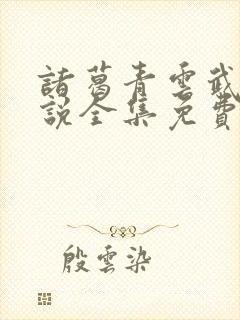 諸葛青雲武
說全集免費
殷雲染